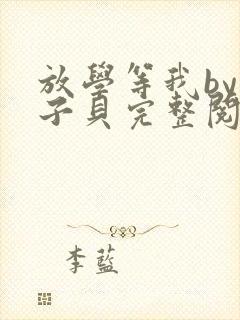 放學等我by
子貝完整閱
李藍